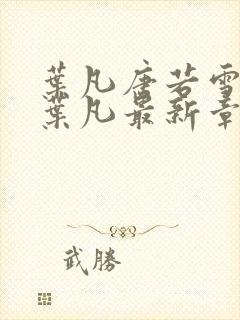 葉凡唐若雪
葉凡最新章
武勝